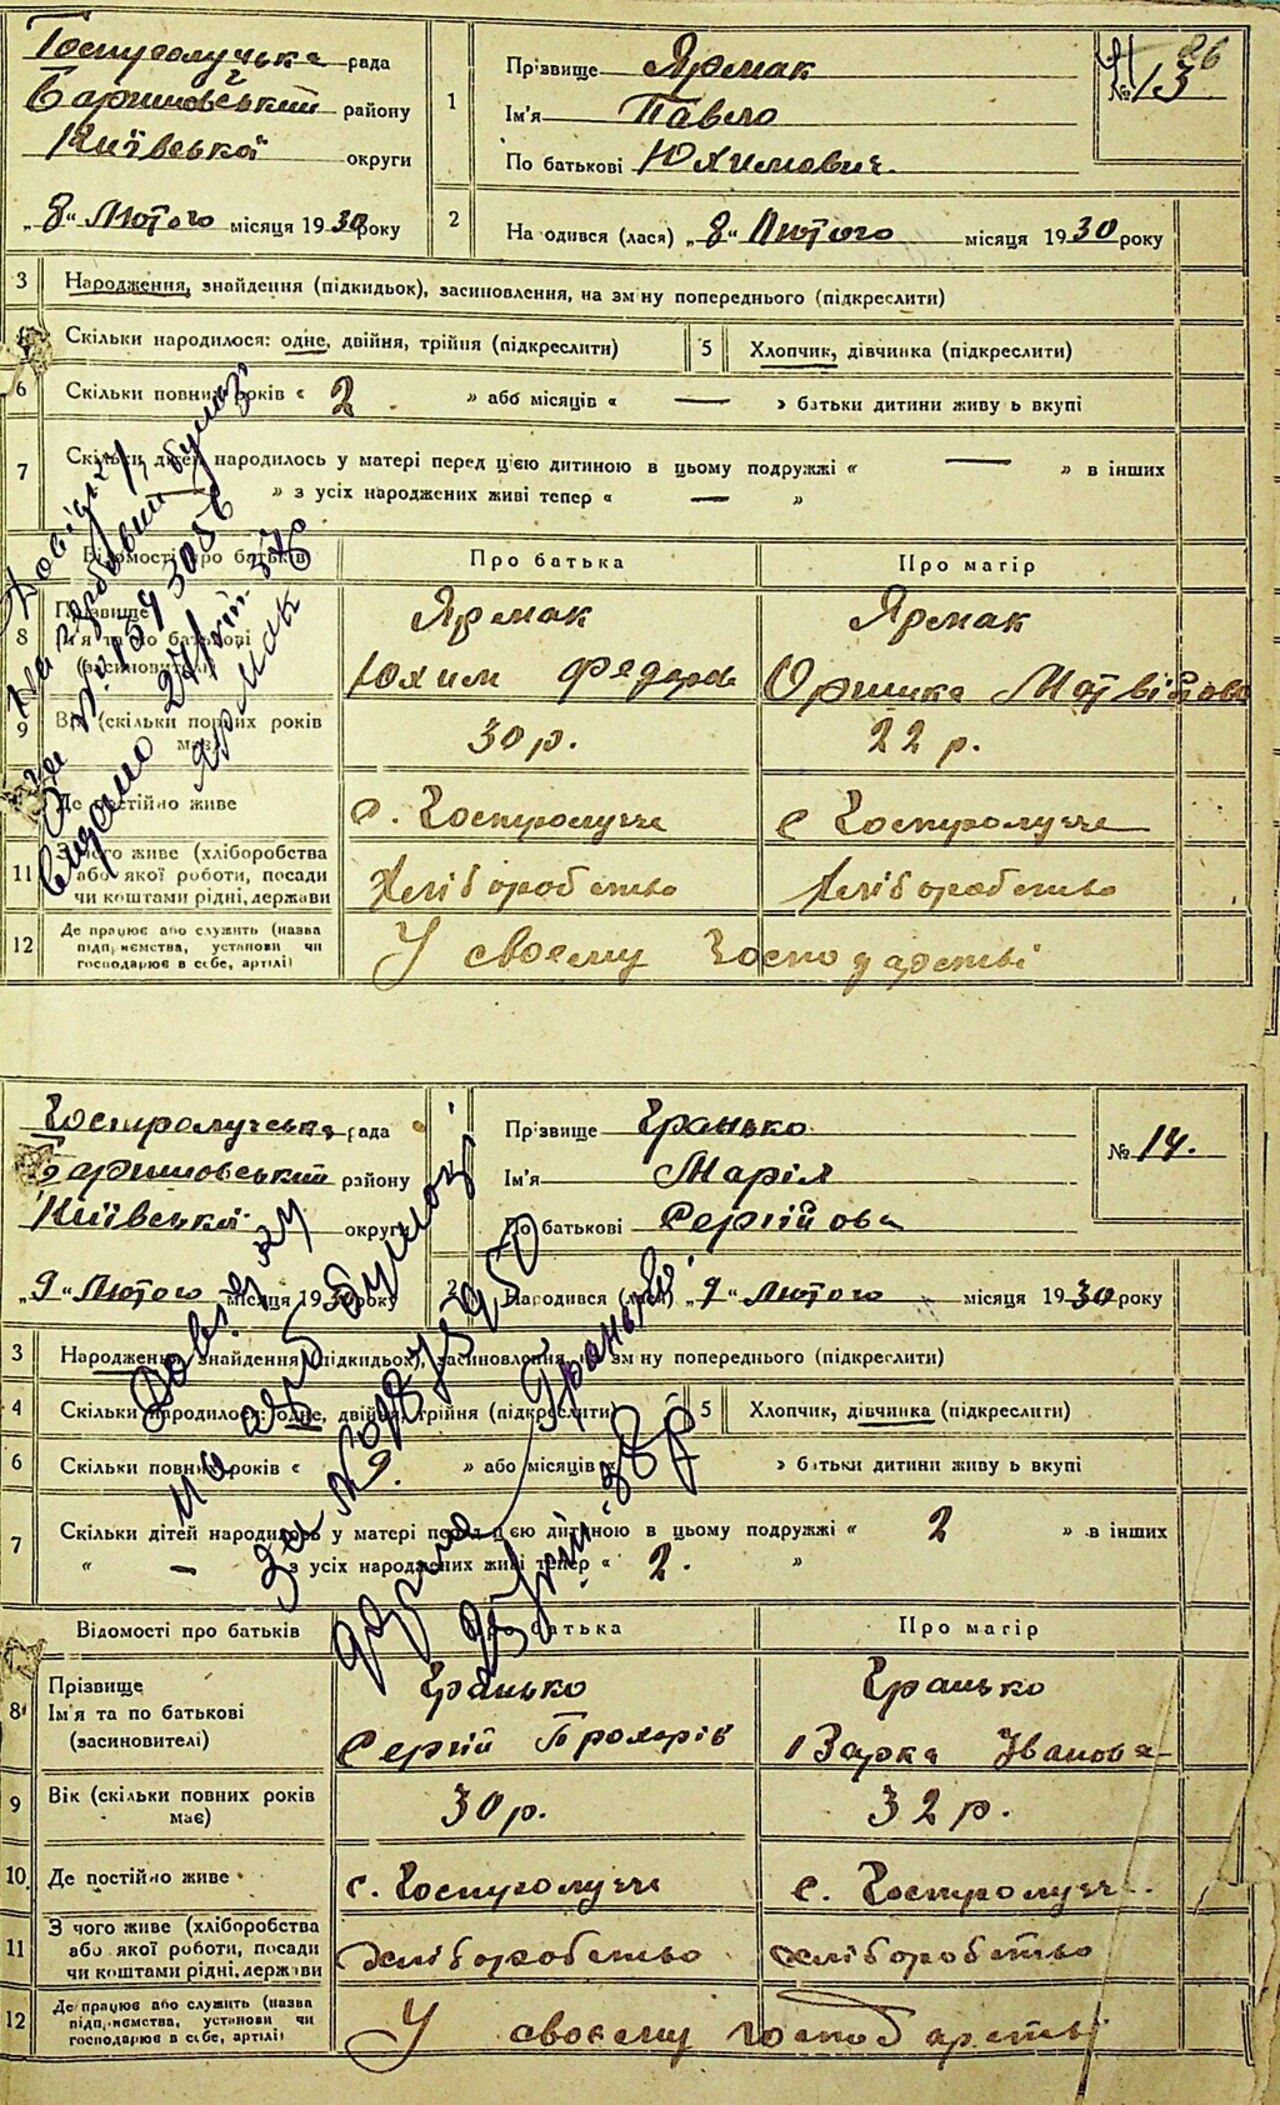 Гостролучська рада
Баришовський району
Київської округи
„8“ Лютого місяця 1930 року
1
Прізвище Ярмак
Ім'я Павло
По батькові Юхимович.
86
№ 13
2
Народився (лася) „8“ Лютого місяця 1930 року
3 Народження, знайдення (підкидьок), засиновлення, на зміну попереднього (підкреслити)
Скільки народилося: одне, двійня, трійня (підкреслити)
5 Хлопчик, дівчинка (підкреслити)
6 Скільки повних років « 2. » або місяців « — » батьки дитини живуть вкупі
7 Скільки дітей народилось у матері перед цією дитиною в цьому подружжі « — » в інших
« — » з усіх народжених живі тепер « — »
Відомості про батьків Про батька Про матір
8 Прізвище
Ім'я та по батькові
(засиновителі)
Ярмак
Юхим Федоров
Ярмак
Оришка Матвійова
9 Вік (скільки повних років
має)
30 р. 22 р.
Де постійно живе с. Гостролуччє с Гостролуччє
11 З чого живе (хліборобства
або якої роботи, посади
чи коштами рідні, держави
Хліборобство Хліборобство
12 Де працює або служить (назва
підприємства, установи чи
господарює в себе, артілі)
У своєму господарстві
Довідку
видано
Ярмак
Гостролучська рада
Баришовський району
Київської округи
„9“ Лютого місяця 1930 року
Прізвище Гранько
Ім'я Марія
По батькові Сергійова
№ 14.
2 Народився (лася) „9“ Лютого місяця 1930 року
3 Народження, знайдення (підкидьок), засиновлення, на зміну попереднього (підкреслити)
4 Скільки народилося: одне, двійня, трійня (підкреслити)
5 Хлопчик, дівчинка (підкреслити)
6 Скільки повних років « 9. » або місяців « » батьки дитини живуть вкупі
7 Скільки дітей народилось у матері перед цією дитиною в цьому подружжі « 2 » в інших
« — » з усіх народжених живі тепер « 2. »
Відомості про батьків Про батька Про матір
8 Прізвище
Ім'я та по батькові
(засиновителі)
Гранько
Сергій Прохорів
Гранько
Варка Іванова
9 Вік (скільки повних років
має)
30 р. 32 р.
10 Де постійно живе с. Гостролуччє с. Гостролучч
11 З чого живе (хліборобства
або якої роботи, посади
чи коштами рідні, держави
хліборобство хліборобство
12 Де працює або служить (назва
підприємства, установи чи
господарює в себе, артілі)
У своєму господарстві
Довідку
Гранько